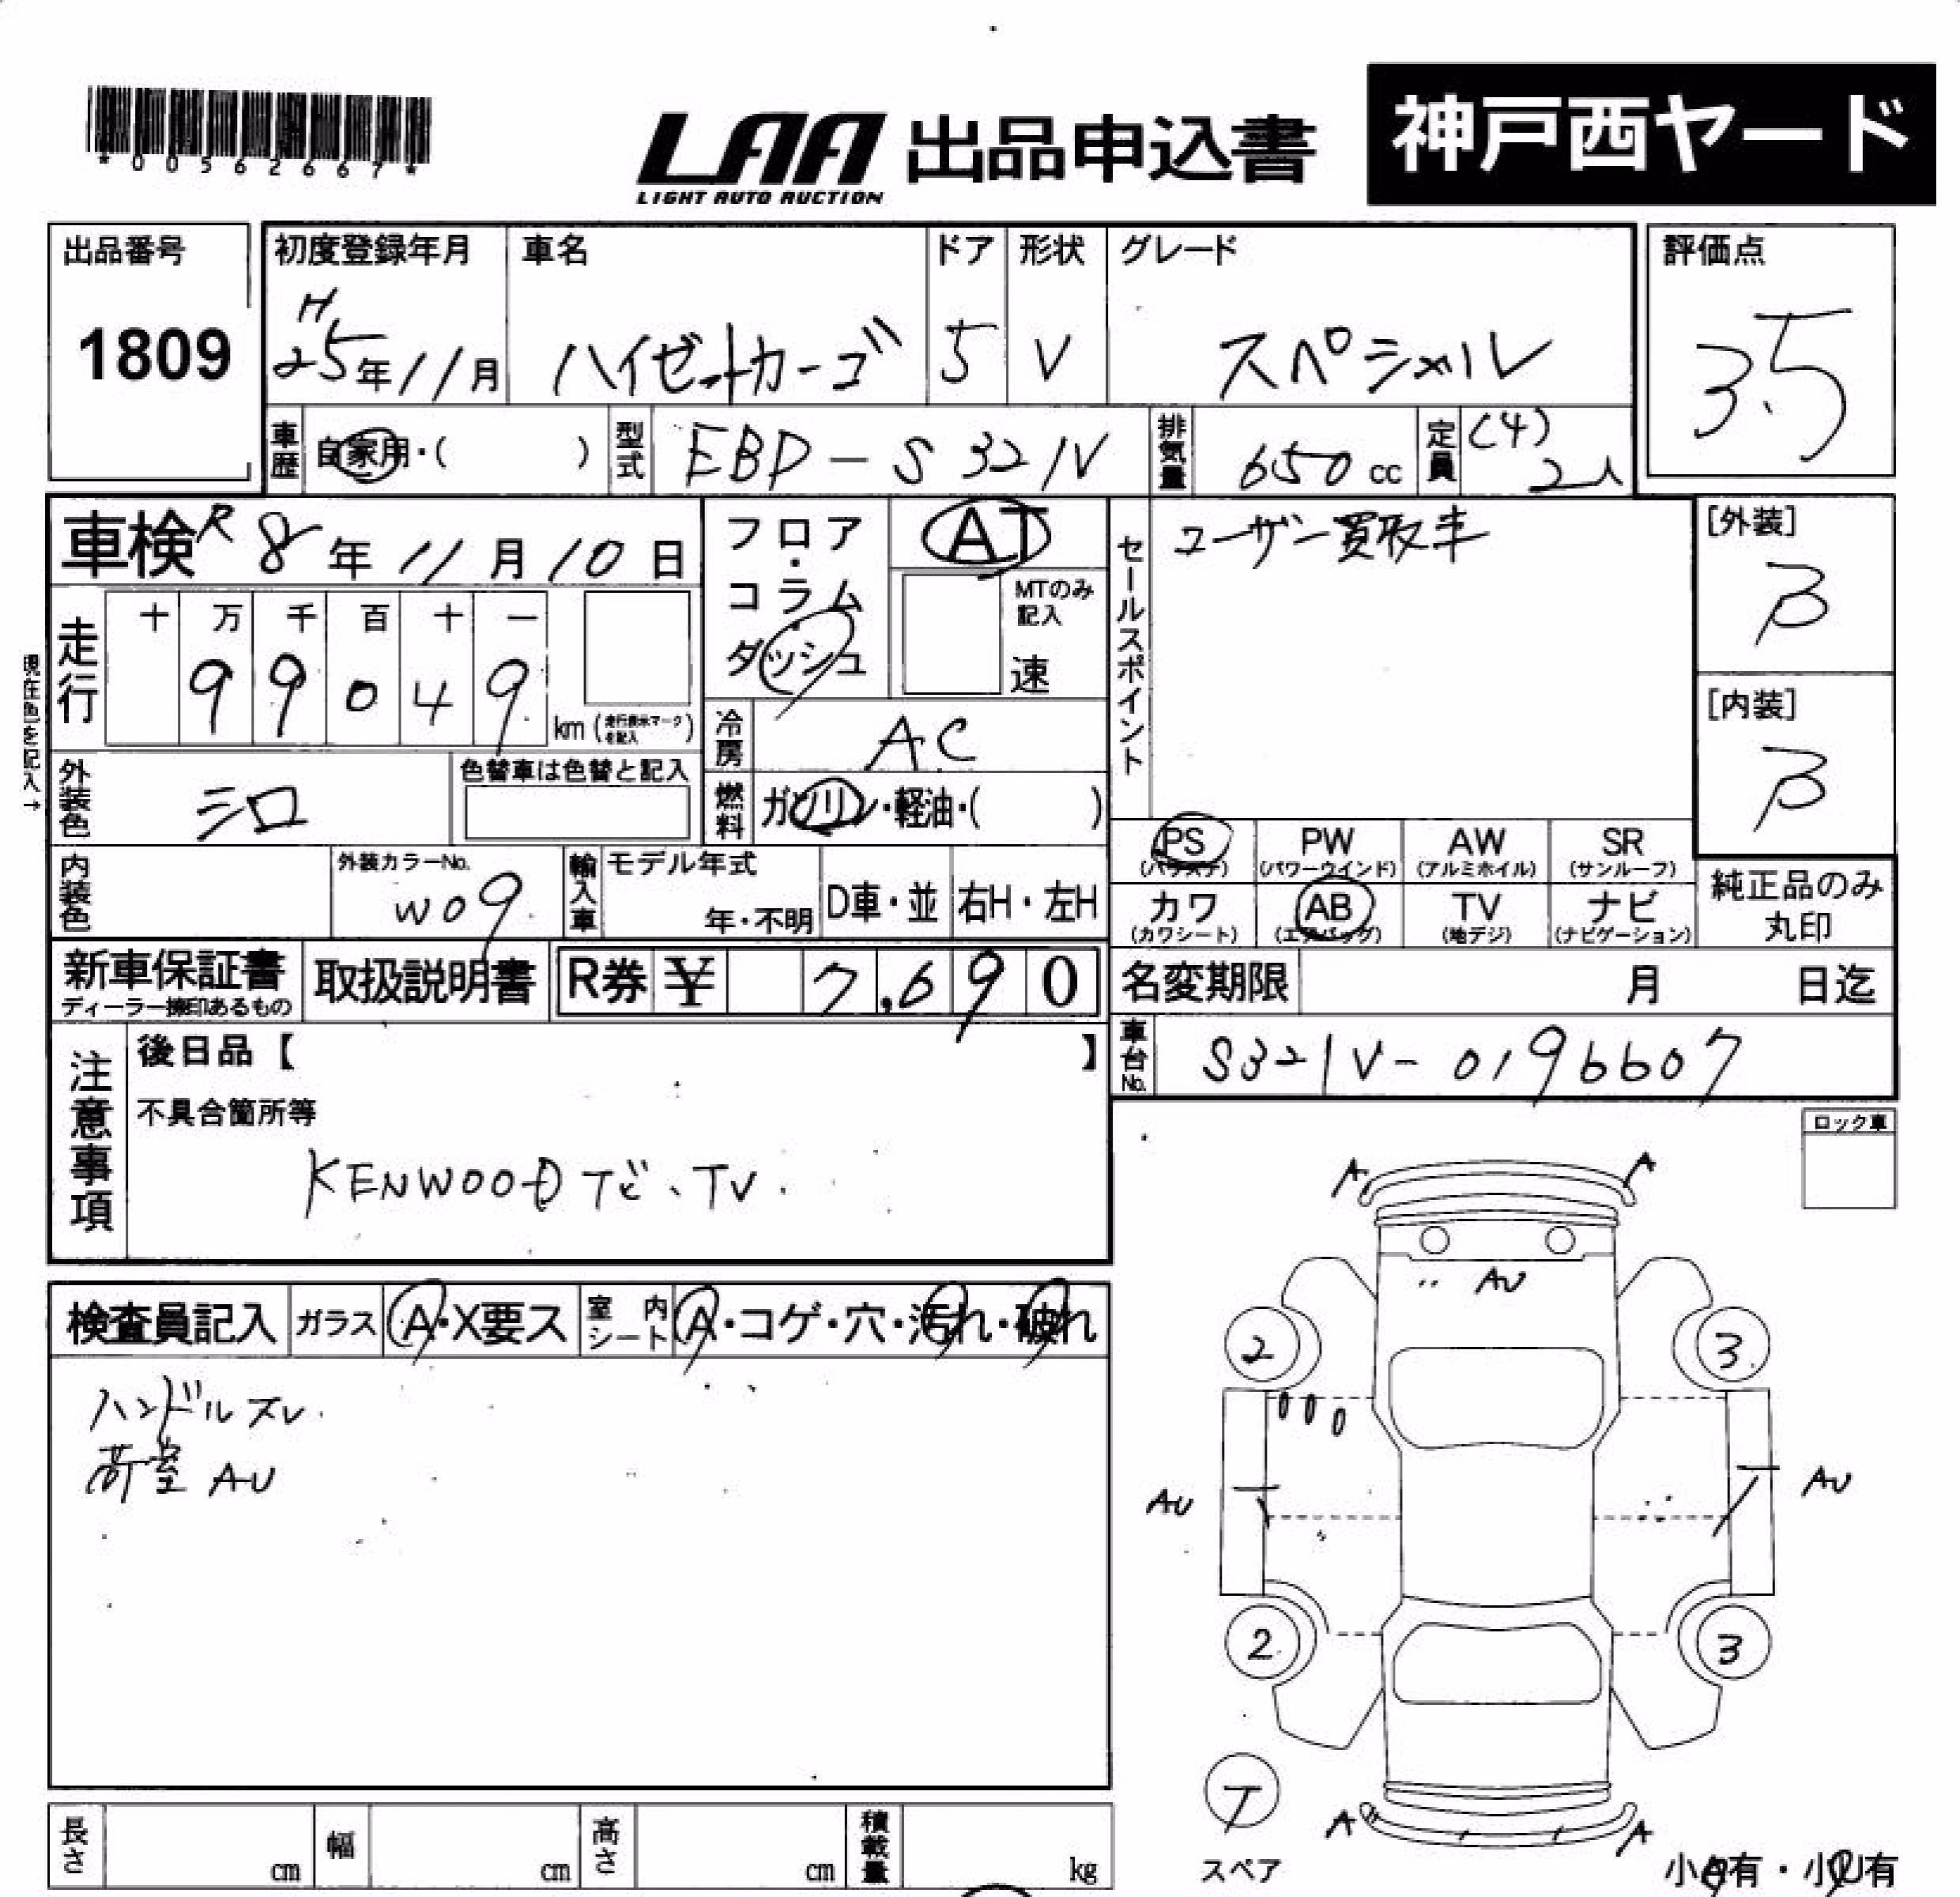 *00562667*
LAA 出品申込書 神戸西ヤード
LIGHT AUTO AUCTION
出品番号 1809
初度登録年月 H25年11月
車名 ハイゼットカーゴ
ドア 5
形状 V
グレード スペシャル
評価点 3.5
車歴 自家用・( )
型式 EBD-S321V
排気量 650cc
定員 (4) 2人
車検 R8年11月10日
フロア・コラム・ダッシュ
AT
MTのみ記入
速
セールスポイント
ユーザー買取車
[外装] B
[内装] B
現在色を記入→
走行 十 万 千 百 十 一
9 9 0 4 9 km (走行表示マークを記入)
冷房 AC
燃料 ガソリン・軽油・( )
外装色 シロ
色替車は色替と記入
内装色
外装カラーNo. W09
輸入車 モデル年式 年・不明 D車・並 右H・左H
PS (パワステ) PW (パワーウインド) AW (アルミホイル) SR (サンルーフ)
カワ (カワシート) AB (エアバッグ) TV (地デジ) ナビ (ナビゲーション)
純正品のみ丸印
新車保証書
ディーラー捺印あるもの
取扱説明書
R券 ¥ 7,690
名変期限 月 日迄
車台No. S321V-0196607
注意事項
後日品【 】
不具合箇所等
KENWOOD ナビ、TV.
ロック車
検査員記入 ガラス A・X要ス 室内シート A・コゲ・穴・汚れ・破れ
ハンドルスレ
荷室 AU
A A
AU
2 3
AU AU
2 3
T
スペア
A A
小キ有・小U有
長さ cm 幅 cm 高さ cm 積載量 kg